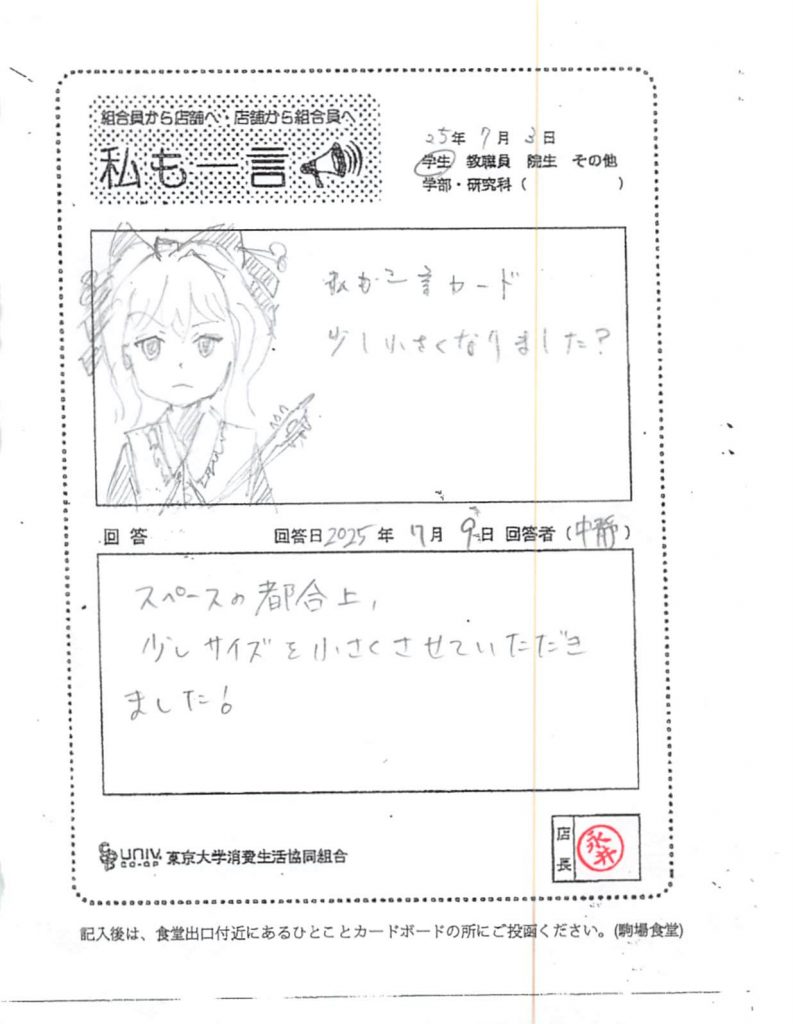 組合員から店舗へ・店舗から組合員へ
私も一言
25年 7月 3日
学生 教職員 院生 その他
学部・研究科( )
私も一言カード
少し小さくなりました?
回答 回答日2025年 7月 9日 回答者(中静)
スペースの都合上,
少しサイズを小さくさせていただき
ました!
UNIV. CO-OP 東京大学消費生活協同組合
店長
永井
記入後は、食堂出口付近にあるひとことカードボードの所にご投函ください。(駒場食堂)